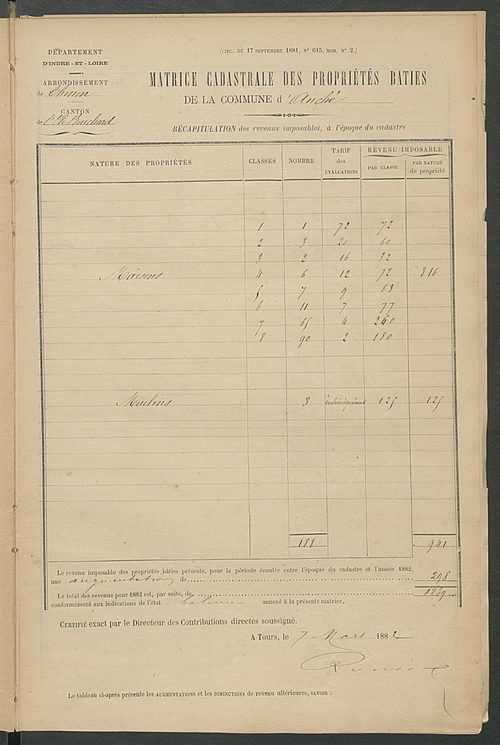 DÉPARTEMENT
D'INDRE-ET-LOIRE
ARRONDISSEMENT
de Chinon
CANTON
de l'Ile Bouchard
(CIRC. DU 17 SEPTEMBRE 1881, N° 615, MOD. N° 2.)
MATRICE CADASTRALE DES PROPRIÉTÉS BATIES
DE LA COMMUNE d'Anché
RÉCAPITULATION des revenus imposables, à l'époque du cadastre
NATURE DES PROPRIÉTÉS CLASSES NOMBRE TARIF des ÉVALUATIONS REVENU IMPOSABLE PAR CLASSE PAR NATURE de propriété
1 1 72 72
2 3 20 60
3 2 16 32
Maisons 4 6 12 72 816
5 7 9 63
6 11 7 77
7 65 4 260
8 90 2 180
Moulins 3 125 125
188 941
Le revenu imposable des propriétés bâties présente, pour la période écoulée entre l'époque du cadastre et l'année 1882,
une augmentation de 298
Le total des revenus pour 1882 est, par suite, de 1239
conformément aux indications de l'état annexé à la présente matrice.
CERTIFIÉ exact par le Directeur des Contributions directes soussigné.
A TOURS, le 7 Mars 1882
Le tableau ci-après présente les AUGMENTATIONS et les DIMINUTIONS de revenu ultérieures, SAVOIR :